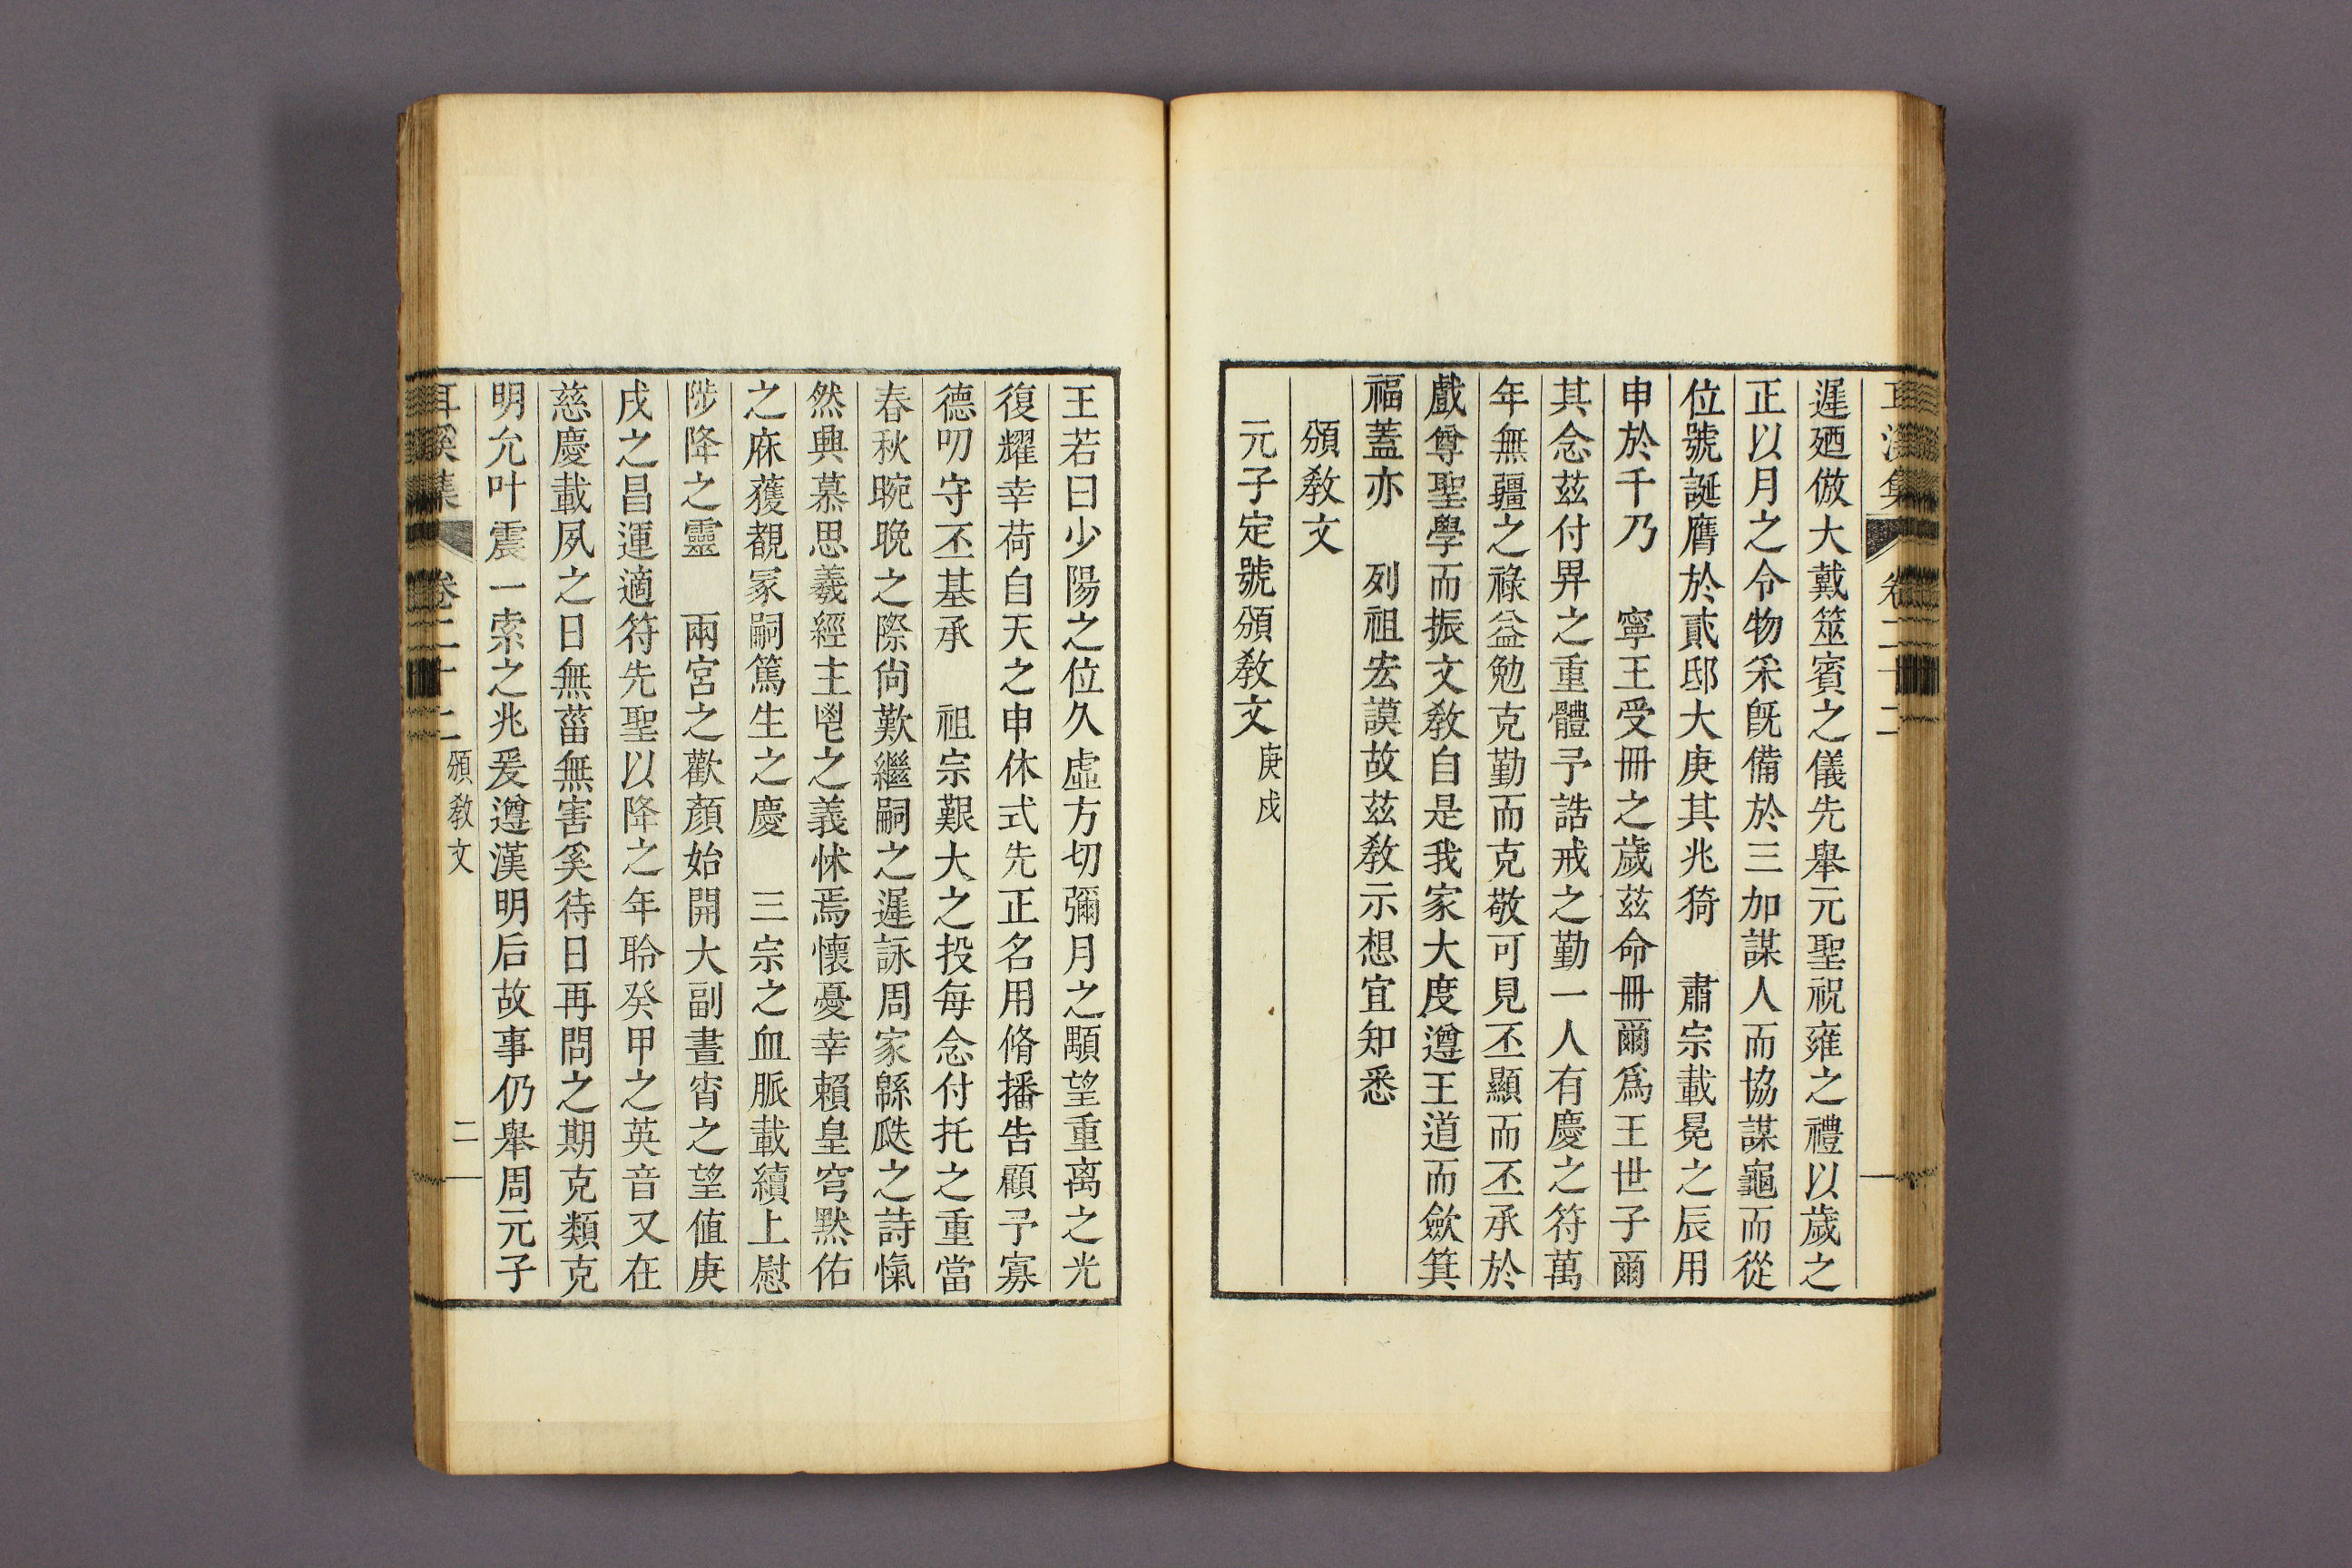 遲廼倣大戴筮賓之儀先舉元聖祝雍之禮以歲之
正以月之令物采旣備於三加謀人而協謀龜而從
位號誕膺於貳邸大庚其兆猗 肅宗載冕之辰用
申於千乃 寧王受冊之歲茲命冊爾爲王世子爾
其念茲付畀之重體予誥戒之勤一人有慶之符萬
年無疆之祿益勉克勤而克敬可見丕顯而丕承於
戲尊聖學而振文敎自是我家大度遵王道而斂箕
福蓋亦 列祖宏謨故茲敎示想宜知悉
頒敎文
元子定號頒敎文庚戌
王若曰少陽之位久虛方切彌月之顒望重离之光
復耀幸荷自天之申休式先正名用脩播告顧予寡
德叨守丕基承 祖宗艱大之投每念付托之重當
春秋晼晚之際尙歎繼嗣之遲詠周家緜瓞之詩愾
然興慕思羲經主鬯之義怵焉懷憂幸賴皇穹黙佑
之庥獲覩冢嗣篤生之慶 三宗之血脈載續上慰
陟降之靈 兩宮之歡顏始開大副晝宵之望値庚
戌之昌運適符先聖以降之年聆癸甲之英音又在
慈慶載夙之日無菑無害奚待日再問之期克類克
明允叶震一索之兆爰遵漢明后故事仍舉周元子
耳溪集 卷二十二 頒敎文 二